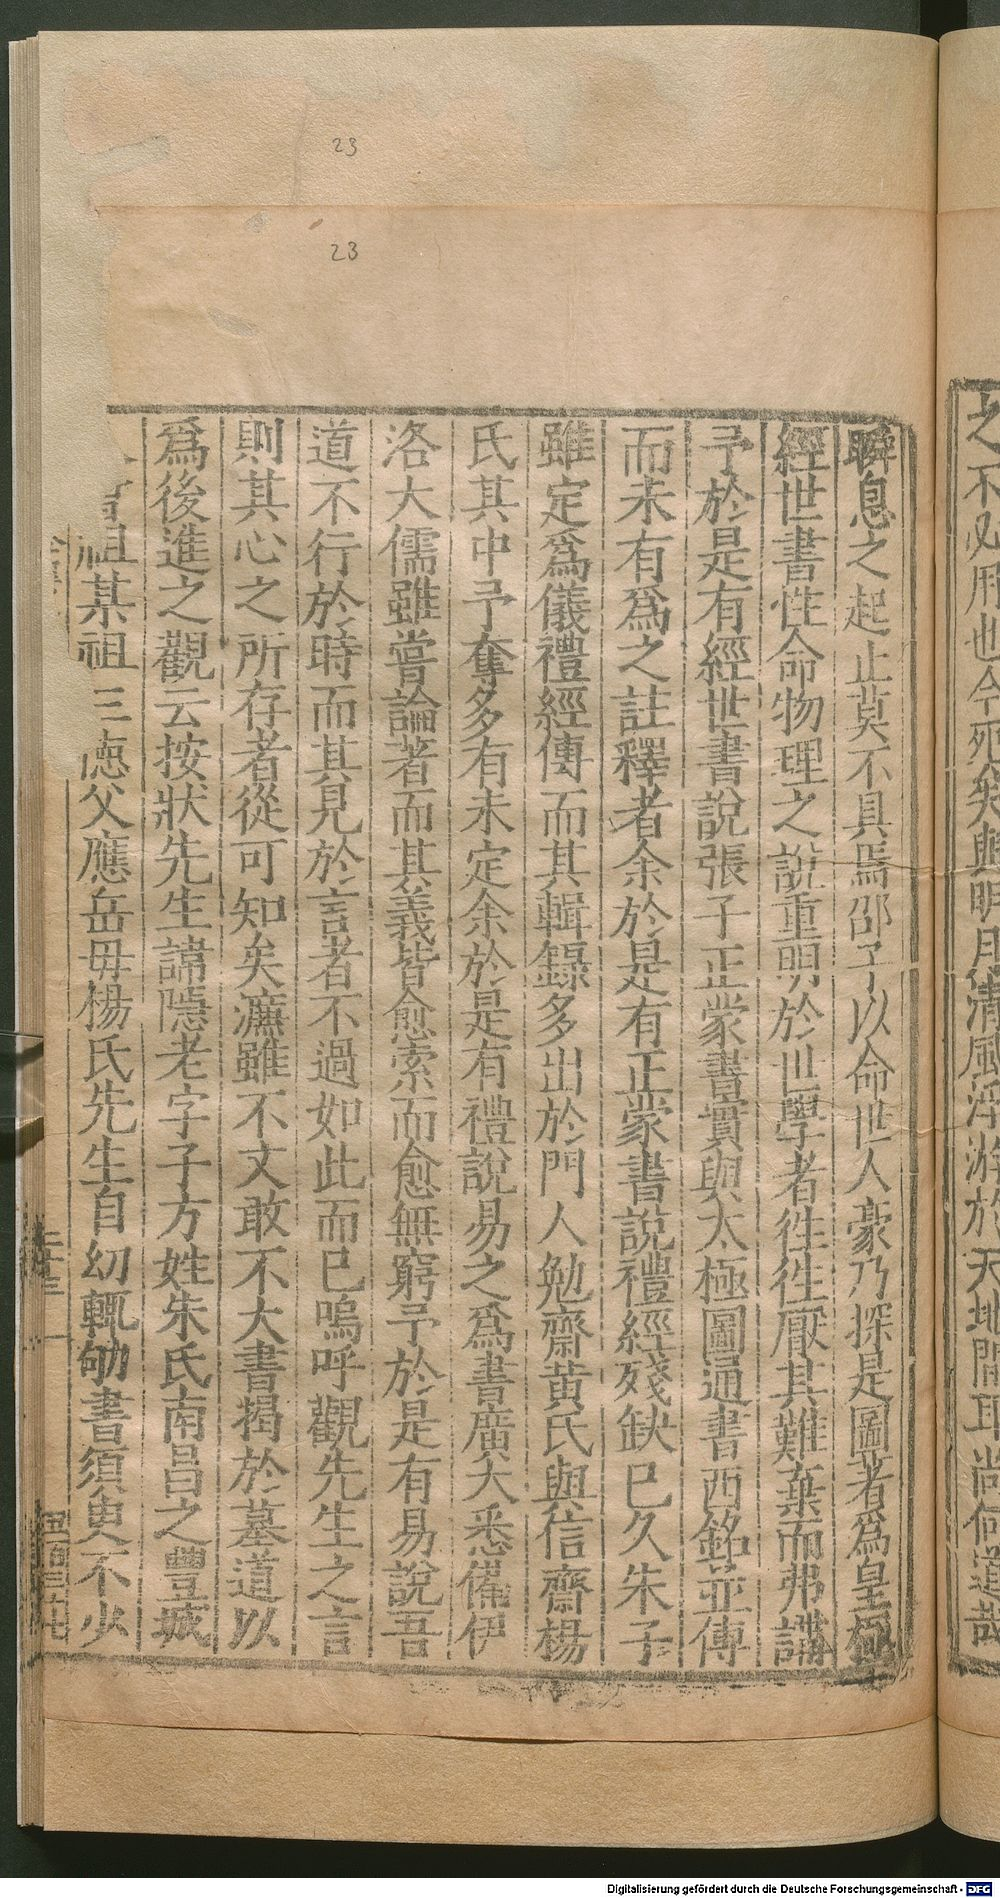 23
23
之不必用也今死矣與明月清風浮游於天地間耳尚何道哉
瞬息之起止莫不具焉邵子以命世人豪乃探是圖者爲皇極
經世書性命物理之說重明於世學者徃徃厭其難棄而弗講
予於是有經世書說張子正蒙書實與太極圖通書西銘並傳
而未有爲之註釋者余於是有正蒙書說禮經殘缺已久朱子
雖定爲儀禮經傳而其輯錄多出於門人勉齋黄氏與信齋楊
氏其中予奪多有未定余於是有禮說易之爲書廣大悉備伊
洛大儒雖嘗論著而其義皆愈索而愈無窮予於是有易說吾
道不行於時而其見於言者不過如此而已嗚呼觀先生之言
則其心之所存者從可知矣濂雖不文敢不大書揭於墓道以
爲後進之觀云按狀先生諱隱老字子方姓朱氏南昌之豐城
祖某祖三德父應岳毋楊氏先生自幼輒劬書須臾不少
Digitalisierung gefördert durch die Deutsche Forschungsgemeinschaft - DFG